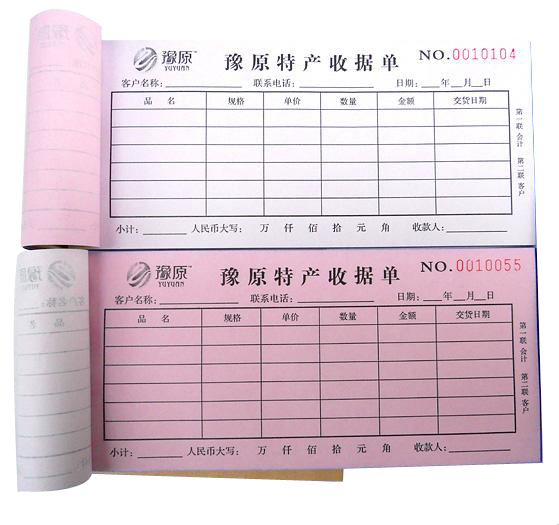 豫原 豫原特产收据单 NO.0010104
YUYUAN
客户名称: 联系电话: 日期: 年 月 日
品 名 规格 单价 数量 金额 交货日期
第一联 会计 第二联 客户
小计: 人民币大写: 万 仟 佰 拾 元 角 收款人:
豫原 豫原特产收据单 NO.0010055
YUYUAN
客户名称: 联系电话: 日期: 年 月 日
品 名 规格 单价 数量 金额 交货日期
第一联 会计 第二联 客户
小计: 人民币大写: 万 仟 佰 拾 元 角 收款人:
豫原
YUYUAN
客户名称:
品 名